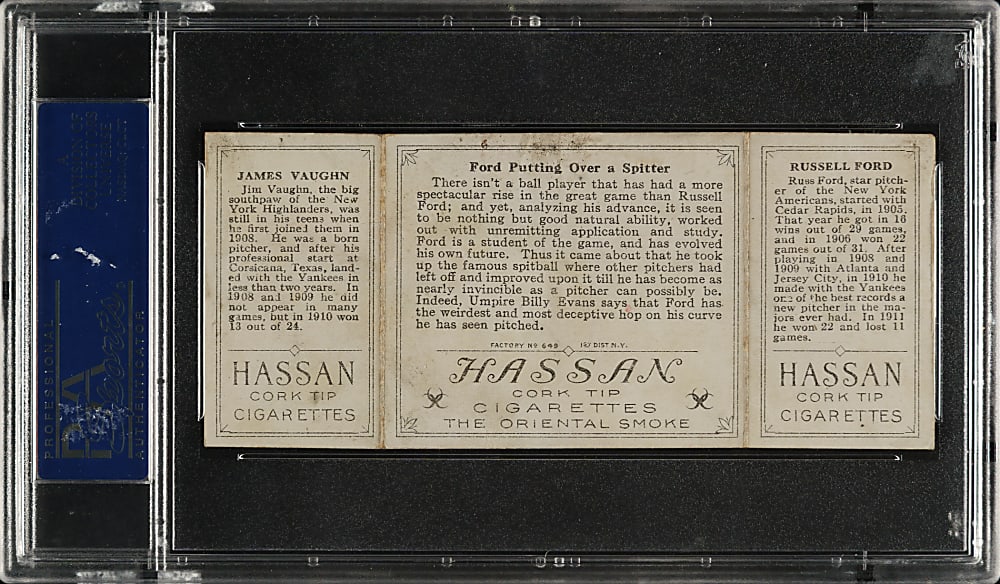 JAMES VAUGHN
Jim Vaughn, the big
southpaw of the New
York Highlanders, was
still in his teens when
he first joined them in
1908. He was a born
pitcher, and after his
professional start at
Corsicana, Texas, land-
ed with the Yankees in
less than two years. In
1908 and 1909 he did
not appear in many
games, but in 1910 won
13 out of 24.
HASSAN
CORK TIP
CIGARETTES
Ford Putting Over a Spitter
There isn't a ball player that has had a more
spectacular rise in the great game than Russell
Ford; and yet, analyzing his advance, it is seen
to be nothing but good natural ability, worked
out with unremitting application and study.
Ford is a student of the game, and has evolved
his own future. Thus it came about that he took
up the famous spitball where other pitchers had
left off and improved upon it till he has become as
nearly invincible as a pitcher can possibly be.
Indeed, Umpire Billy Evans says that Ford has
the weirdest and most deceptive hop on his curve
he has seen pitched.
FACTORY Nº 649 1ST DIST. N.Y.
HASSAN
CORK TIP
CIGARETTES
THE ORIENTAL SMOKE
RUSSELL FORD
Russ Ford, star pitch-
er of the New York
Americans, started with
Cedar Rapids, in 1905.
That year he got in 16
wins out of 29 games,
and in 1906 won 22
games out of 31. After
playing in 1908 and
1909 with Atlanta and
Jersey City, in 1910 he
made with the Yankees
one of the best records a
new pitcher in the ma-
jors ever had. In 1911
he won 22 and lost 11
games.
HASSAN
CORK TIP
CIGARETTES
PROFESSIONAL
PSA
AUTHENTICATOR